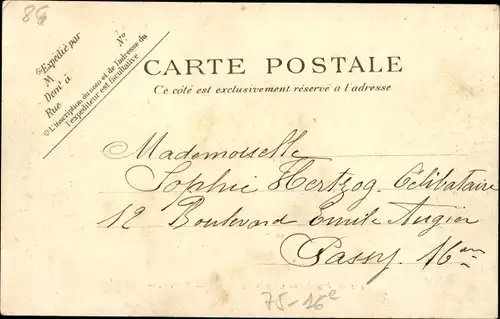 86
Expédié par
M N°
Dem^t à
Rue
L'inscription du nom et de l'adresse de
l'expéditeur est facultative
CARTE POSTALE
Ce côté est exclusivement réservé à l'adresse
Mademoiselle
Sophie Hertzog. Célibataire
12 Boulevard Emile Augier
Passy. 16^em
75-16^e